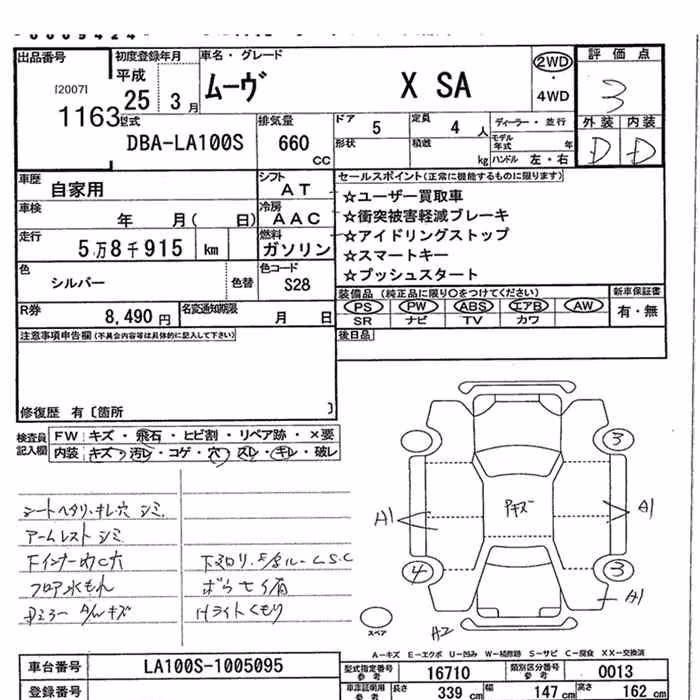 出品番号 初度登録年月 車名・グレード 評価点
[2007] 平成 ムーヴ X SA 2WD ・ 4WD 3
1163 25 3月
外装 内装
D D
型式 DBA-LA100S 排気量 660 CC ドア 5 定員 4人 ディーラー・並行
形状 積載 kg モデル年式 年
ハンドル 左・右
車歴 自家用 シフト AT セールスポイント(正常に機能するものに限ります)
車検 年 月( 日) 冷房 AAC ☆ユーザー買取車
☆衝突被害軽減ブレーキ
走行 5万8千915 km 燃料 ガソリン ☆アイドリングストップ
☆スマートキー
色 シルバー 色替 色コード S28 ☆プッシュスタート
R券 8,490円 名変通知期限 月 日 装備品(純正品に限り○をつけてください) 新車保証書
PS PW ABS エアB AW 有・無
SR ナビ TV カワ
注意事項申告欄(不具合内容等は具体的に記入して下さい) 後日品
修復歴 有〔箇所 〕
検査員記入欄 FW キズ・飛石・ヒビ割・リペア跡・×要
内装 キズ・汚レ・コゲ・穴・スレ・キレ・破レ
3
シートヘタリ・キレ穴 シミ
アームレスト シミ
A1 A1
4 3
フロア水もれ
Hライトくもり
A1
スペア A2
A-キズ E-エクボ U-凹み W-補修跡 S-サビ C-腐食 XX-交換済
車台番号 LA100S-1005095 型式指定番号 参考 16710 類別区分番号 参考 0013
登録番号 車庫証明用 参考 長さ 339 cm 幅 147 cm 高さ 162 cm